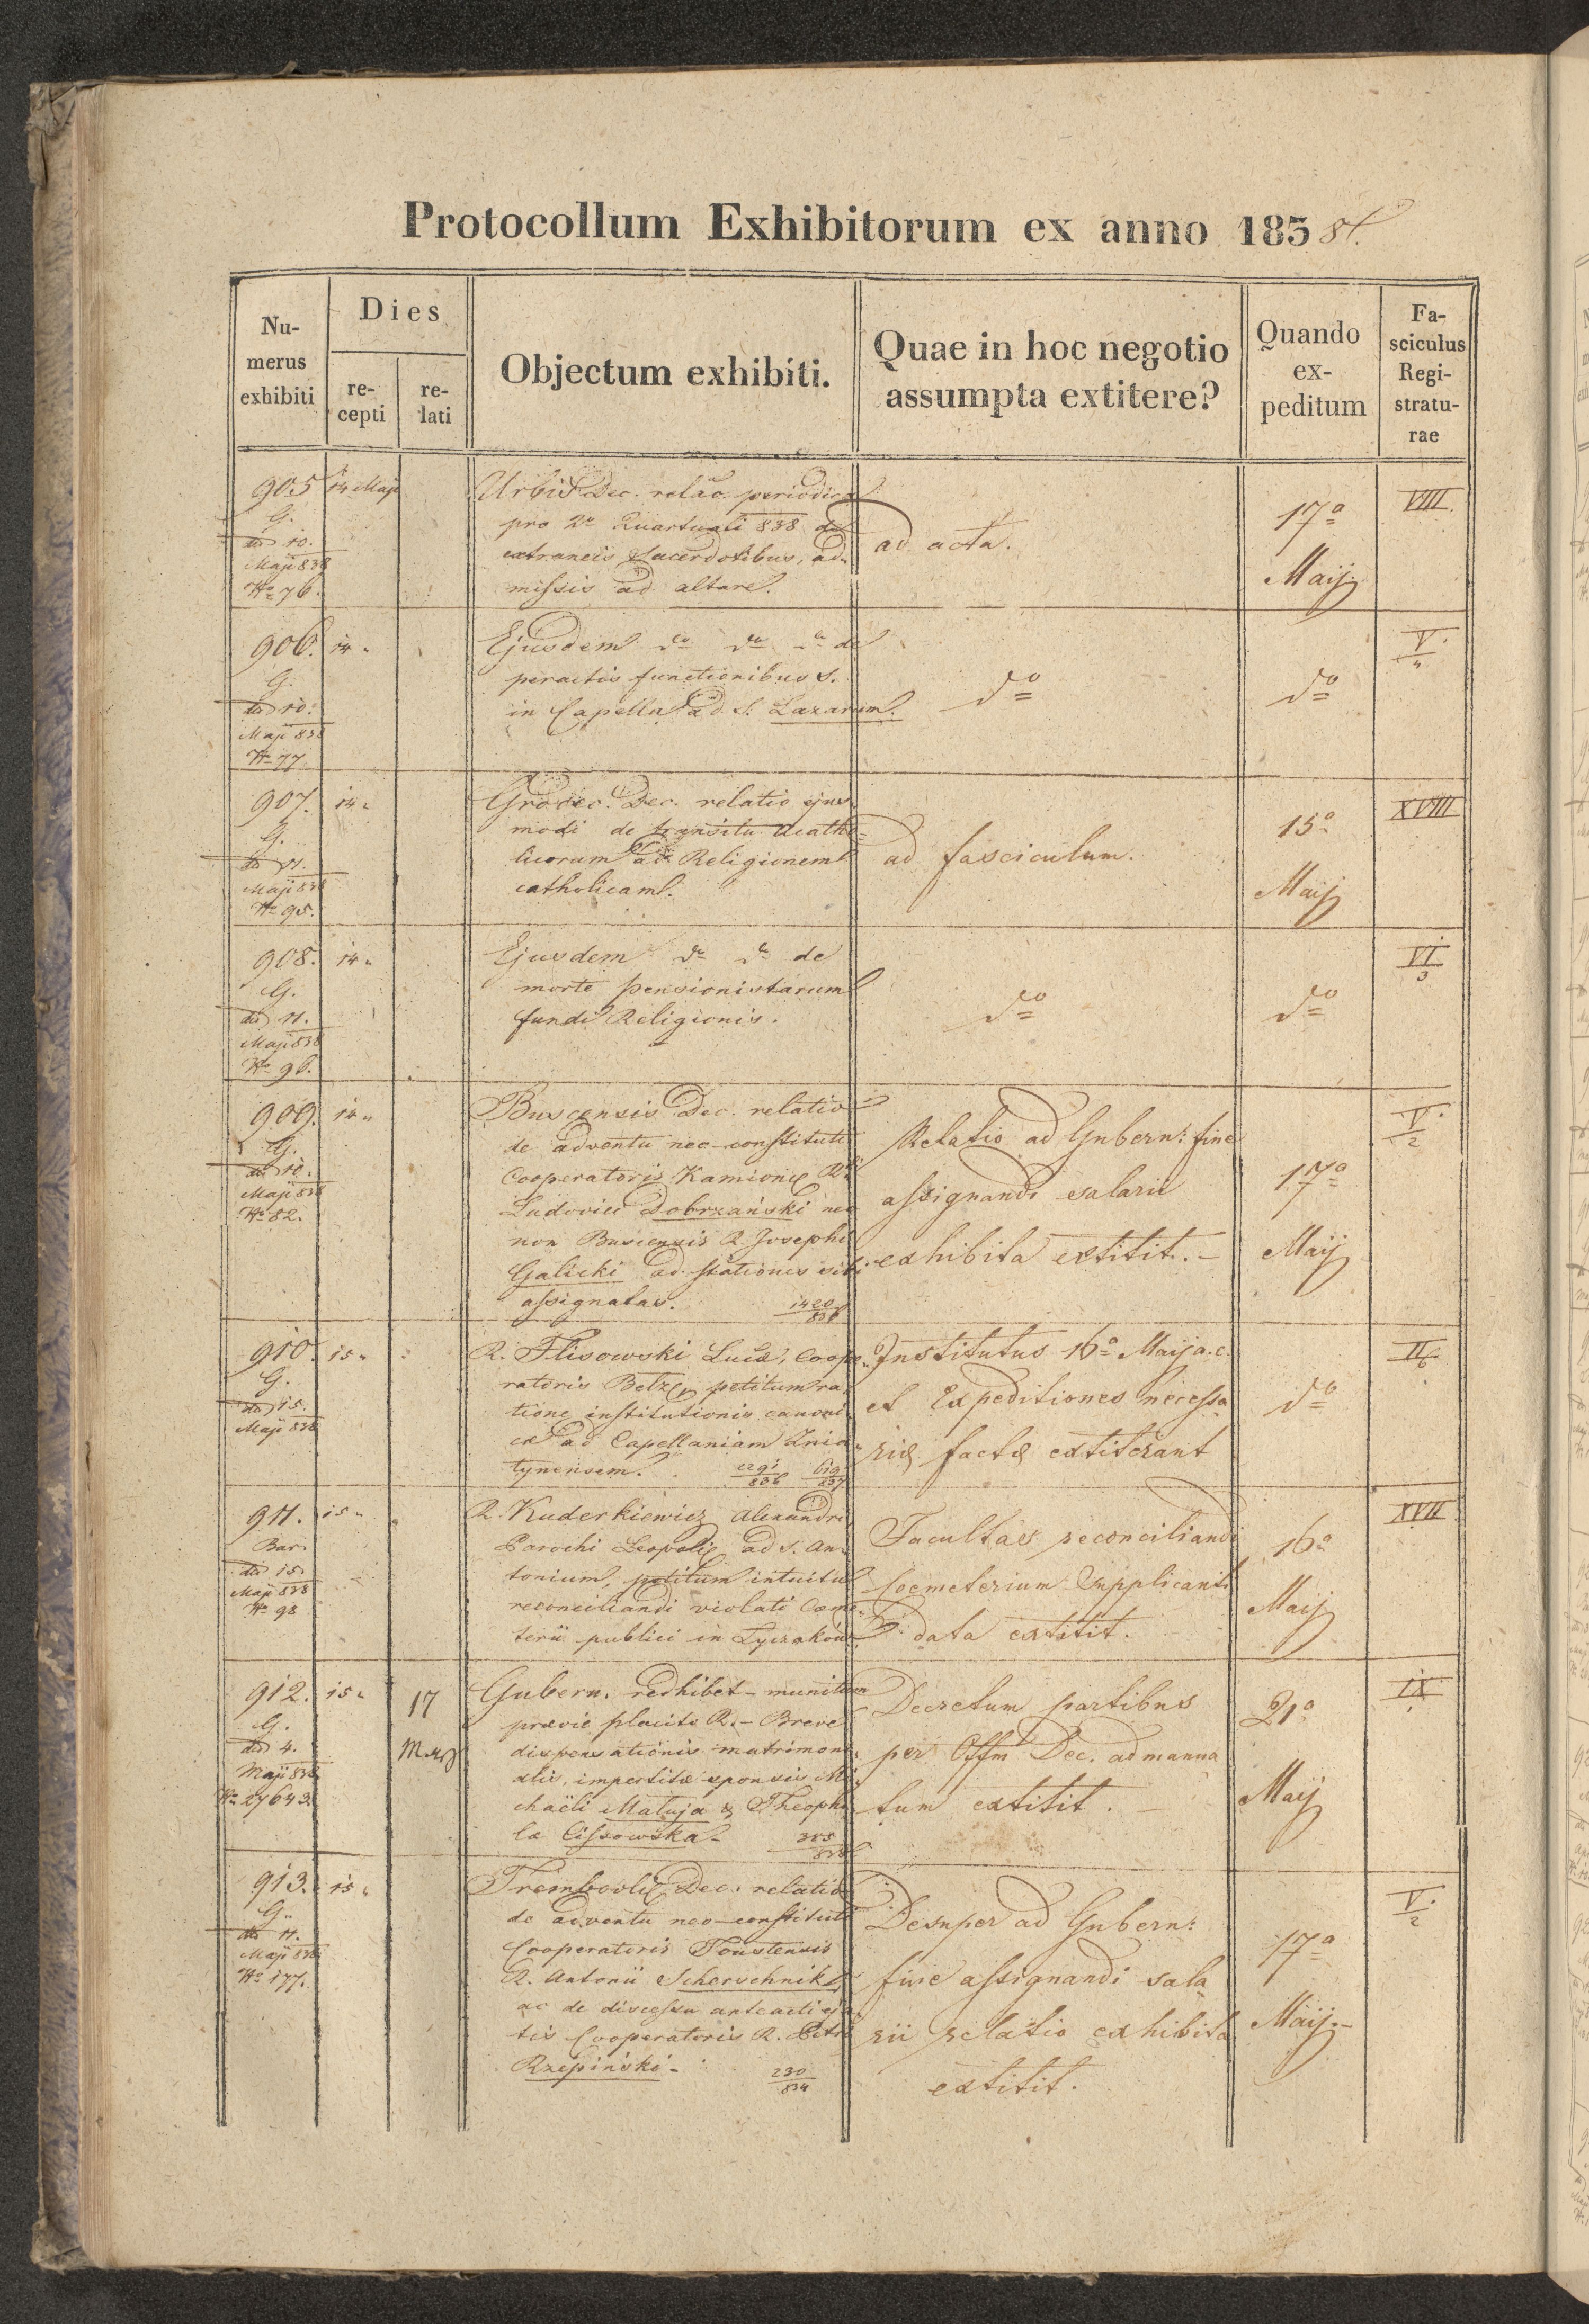 Protocollum Exhibitorum ex anno 183 8t.
Nu-
merus
exhibiti
Dies
re-
cepti
re-
lati
Objectum exhibiti.
Quae in hoc negotio
assumpta extitere?
Quando
ex-
peditum
Fa-
sciculus
Regi-
stratu-
rae
905
14 Maji
G.
dto 10.
Maji 838
No 76.
Urbis Dec. relão. periodica
pro 2o Quartuali 838 de
extraneis Sacerdotibus, ad-
missis ad altare.
ad acta.
17a
Maij
VIII.
906.
14 "
G.
dto 10.
Maji 838
No 77
Ejusdem do do do de
peractis functionibus s.
in Capella ad S. Lazarum.
do
do
V.
4
907.
14 "
G.
dto 11.
Maji 838
No 95.
Grodec. Dec. relatio ejus
modi de transitu acatho-
licorum ad Religionem
catholicam.
ad fasciculum.
15a
Maij
XVIII
908.
14 "
G.
dto 11.
Maji 838
No 96.
Ejusdem do do de
morte pensionistarum
fundi Religionis.
do
do
VI
3
909.
14 "
G.
dto 10.
Maji 838
No 82.
Buscensis Dec. relatio
de adventu neo-constituti
Cooperatoris Kamionæ R.
Ludovici Dobrzański nec
non Buscensis R. Josephi
Galicki ad stationes sibi
assignatas.
1420
838
Relatio ad Gubern: fine
assignandi salarii
exhibita extitit. -
17a
Maij
V.
2
910.
15 "
G.
dto 15.
Maji 838
R. Flisowski Lucæ, Coope-
ratoris Belzæ petitum ra-
tione institutionis canoni-
cæ ad Capellaniam Znia-
tynensem.
1291
836
619
837
Institutus 16a Maij a.c.
et Expeditiones necessa-
riæ factæ extiterant
do
II
6
911.
15 "
Bar.
dto 15.
Maji 838
No 98
R. Kuderkiewicz Alexandri
Parochi Leopoli ad S. An-
tonium, petitum intuitu
reconciliandi violati Cœme-
terii publici in Łyczaków
Facultas reconciliandi
Coemeterium Supplicanti
data extitit.
16a
Maij
XVII
912.
15 "
17
Maij
G.
dto 4.
Maji 838
No 27643.
Gubern. redhibet - munitum
prævie placito R. - Breve
dispensationis matrimoni-
alis, impertitæ sponsis Mi-
chaëli Matuja & Theophi-
læ Cissowska -
385
838
Decretum partibus
per Offm Dec. admanua
tum extitit. -
21a
Maij
IX
913.
15 "
G.
dto 11.
Maji 838
No 177.
Trembovlæ Dec. relatio
de adventu neo-constituti
Cooperatoris Toustensis
R. Antonii Scherschnik,
ac de discessu anteacti eja-
tis Cooperatoris R. Petri
Rzepiński -
230
834
Desuper ad Gubern:
fine assignandi sala
rii relatio exhibita
extitit.
17a
Maij. -
V.
2